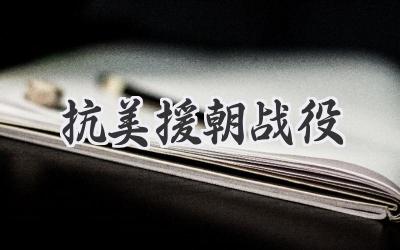 抗美援朝战役